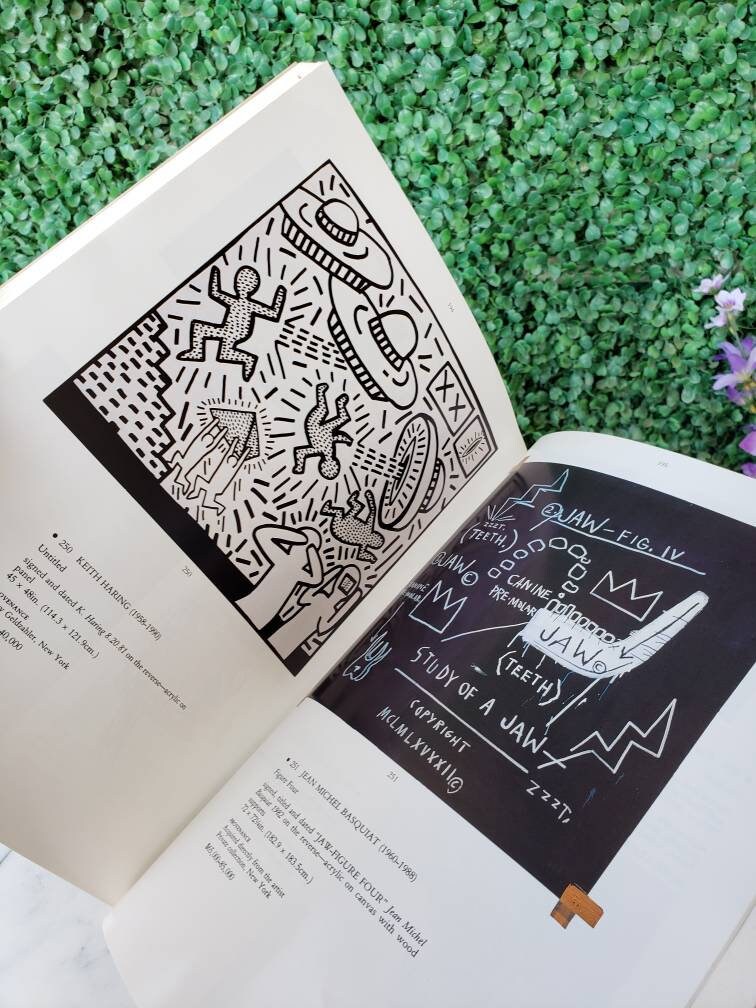 250
• 250 KEITH HARING (1958-1990)
Untitled
signed and dated K. Haring 8.20.81 on the reverse—acrylic on
panel
45 x 48in. (114.3 x 121.9cm.)
Geldzahler, New York
40,000
XX
2 JAW-FIG. IV
ZZZT,
(TEETH,)
JAW©
CANINE
PRE-MOLAR
JAW©
(TEETH)
STUDY OF A JAW
COPYRIGHT
MCMLXVXXII©
ZZZT,
251
• 251 JEAN MICHEL BASQUIAT (1960-1988)
Figure Four
signed, titled and dated "JAW-FIGURE FOUR" Jean Michel
Basquiat 1982 on the reverse—acrylic on canvas with wood
supports
72 x 72¼in. (182.9 x 183.5cm.)
PROVENANCE
Acquired directly from the artist
Private collection, New York